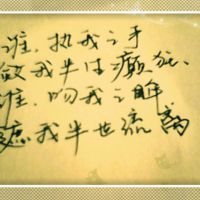 谁，执我之手
敛我半世癫狂、
谁，吻我之眸
遮我半世流离